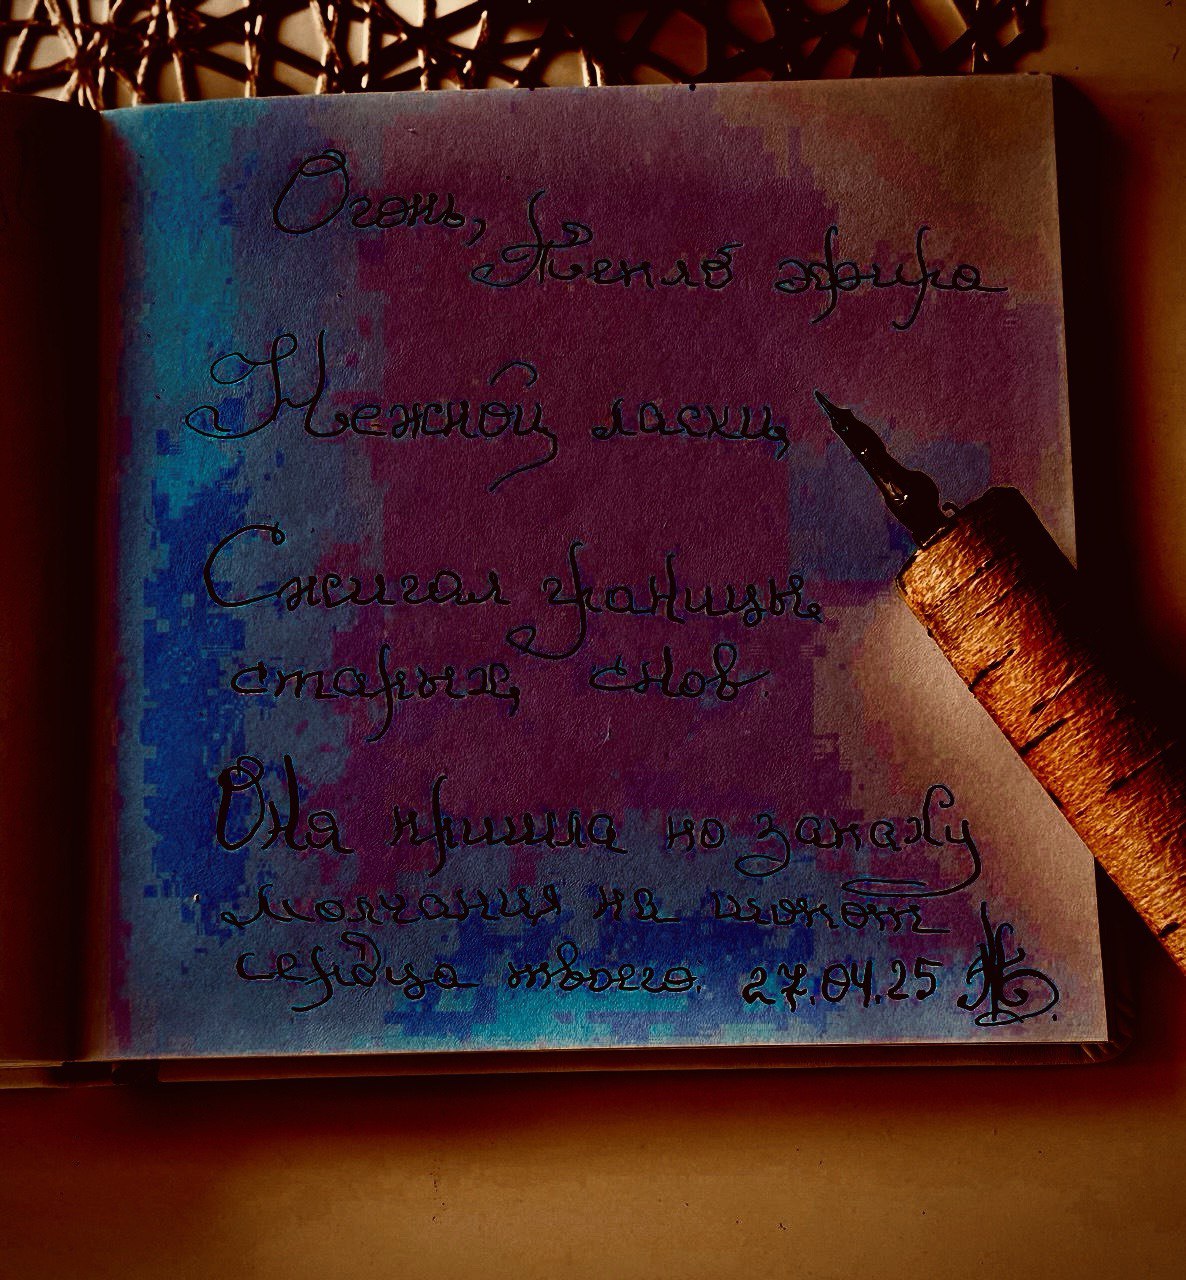 Огонь,
Тепло эфира
Нежной ласки,
Сжигал границы
старых, снов.
Она пришла по запаху
молчания на шёпот
сердца твоего. 27.04.25